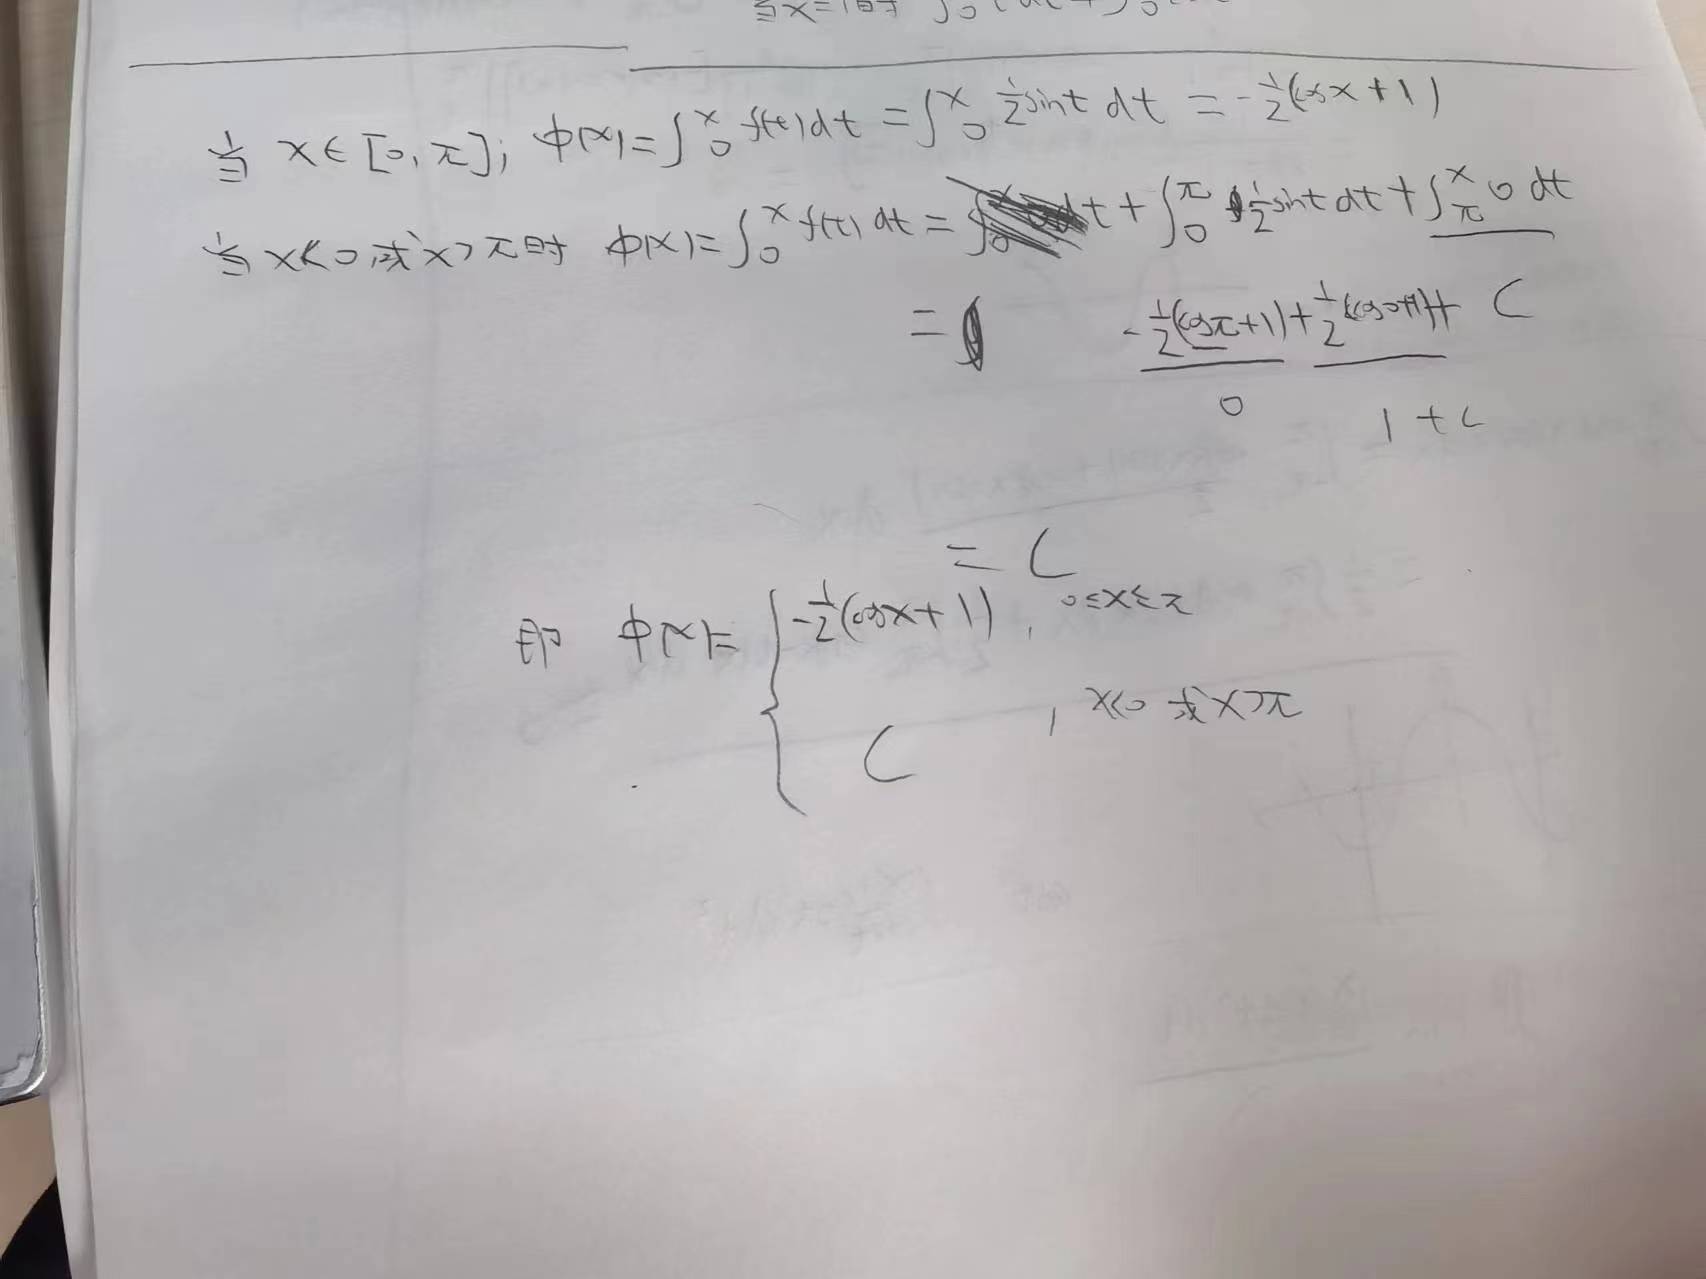 当x=1时 ∫0
当 x∈[0,π]; φ(x)=∫₀ˣ f(t)dt=∫₀ˣ ½sint dt = -½(cosx+1)
当x<0或x>π时 φ(x)=∫₀ˣ f(t) dt= t+∫₀^π ½sint dt+∫_πˣ 0 dt
= -½(cosπ+1)+½(cos0+1)+ C
0 1+C
= C
即 φ(x)={ -½(cosx+1), 0≤x≤π
C , x<0 或x>π